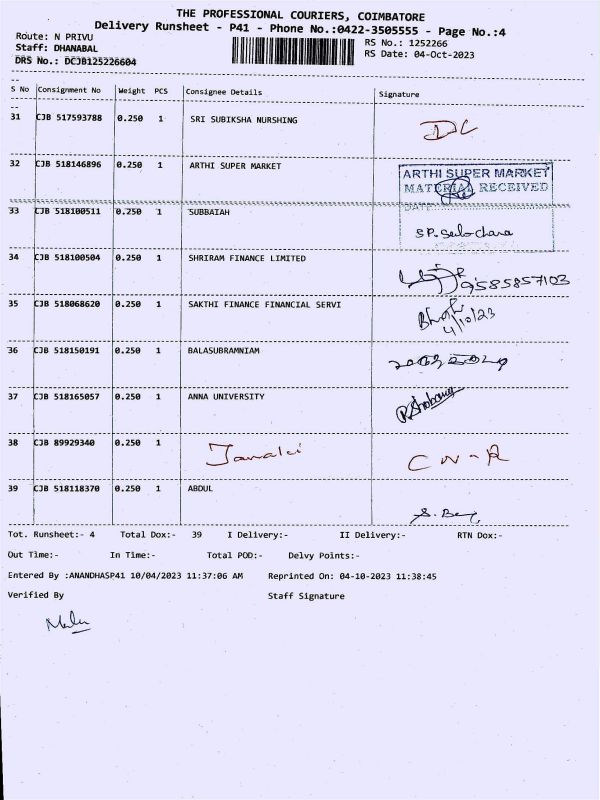 THE PROFESSIONAL COURIERS, COIMBATORE
Delivery Runsheet - P41 - Phone No.:0422-3505555 - Page No.:4
Route: N PRIVU
RS No.: 1252266
Staff: DHANABAL
RS Date: 04-Oct-2023
DRS No.: DCJB125226604
S No Consignment No Weight PCS Consignee Details Signature
31 CJB 517593788 0.250 1 SRI SUBIKSHA NURSHING
32 CJB 518146896 0.250 1 ARTHI SUPER MARKET
ARTHI SUPER MARKET
MATERIAL RECEIVED
DATE
33 CJB 518100511 0.250 1 SUBBAIAH
34 CJB 518100504 0.250 1 SHRIRAM FINANCE LIMITED
9585857103
35 CJB 518068620 0.250 1 SAKTHI FINANCE FINANCIAL SERVI
4/10/23
36 CJB 518150191 0.250 1 BALASUBRAMNIAM
37 CJB 518165057 0.250 1 ANNA UNIVERSITY
38 CJB 89929340 0.250 1 Janaki
39 CJB 518118370 0.250 1 ABDUL
Tot. Runsheet:- 4 Total Dox:- 39 I Delivery:- II Delivery:- RTN Dox:-
Out Time:- In Time:- Total POD:- Delvy Points:-
Entered By :ANANDHASP41 10/04/2023 11:37:06 AM Reprinted On: 04-10-2023 11:38:45
Verified By Staff Signature